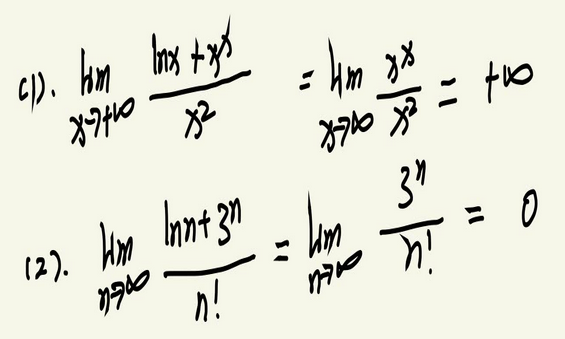 (1). lim_{x→+∞} \frac{lnx + x^x}{x^2} = lim_{x→∞} \frac{x^x}{x^2} = +∞
(2). lim_{n→∞} \frac{lnn + 3^n}{n!} = lim_{n→∞} \frac{3^n}{n!} = 0